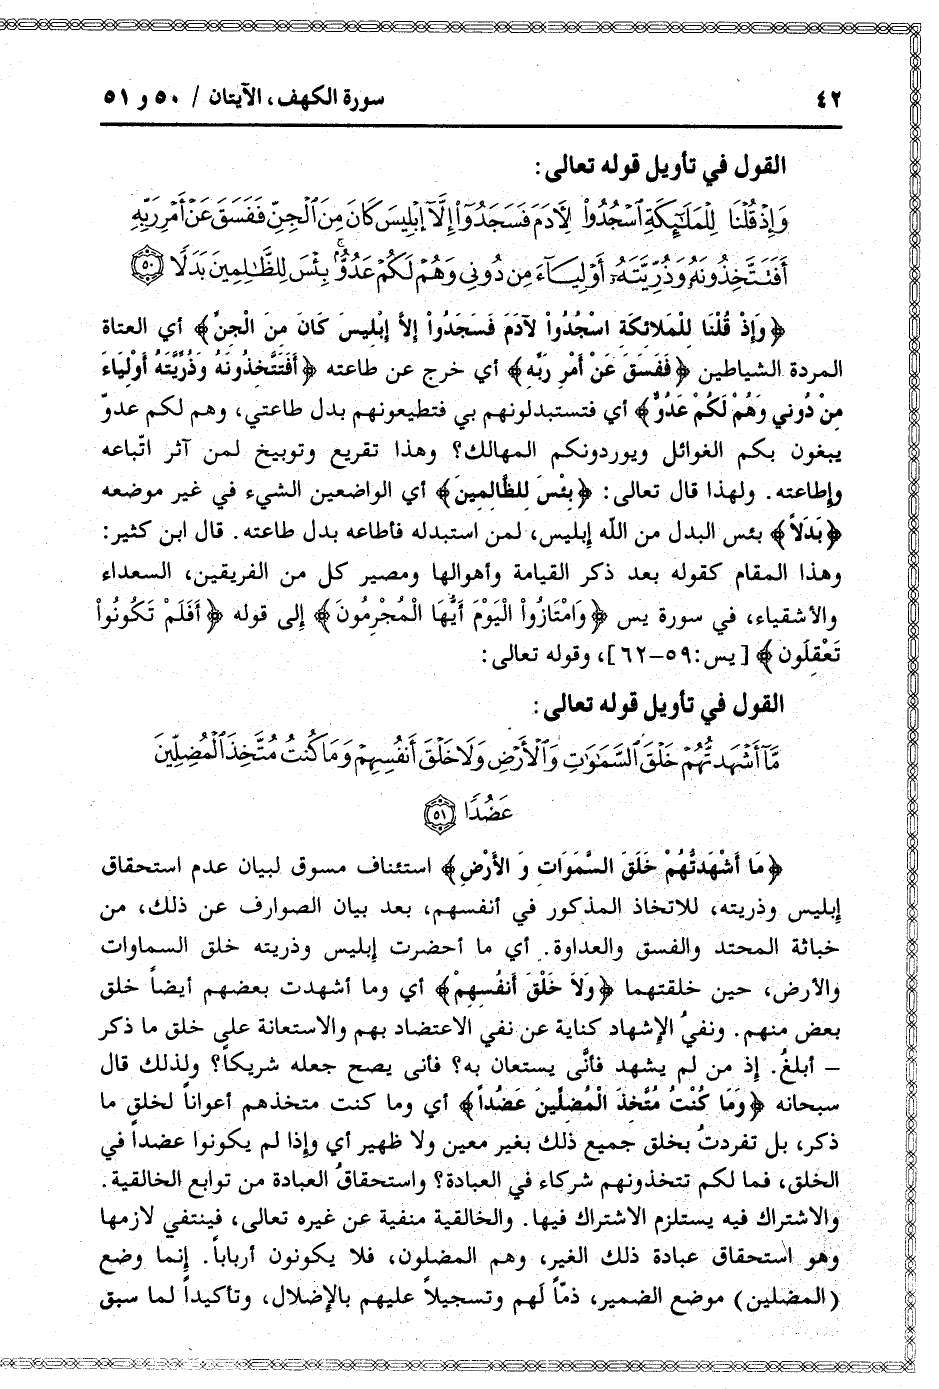 ٤٢ سورة الكهف، الآيتان / ٥٠ و ٥١
القول في تأويل قوله تعالى:
وَإِذْ قُلْنَا لِلْمَلَٰٓئِكَةِ ٱسْجُدُوا۟ لِـَٔادَمَ فَسَجَدُوٓا۟ إِلَّآ إِبْلِيسَ كَانَ مِنَ ٱلْجِنِّ فَفَسَقَ عَنْ أَمْرِ رَبِّهِۦٓ
أَفَتَتَّخِذُونَهُۥ وَذُرِّيَّتَهُۥٓ أَوْلِيَآءَ مِن دُونِى وَهُمْ لَكُمْ عَدُوٌّۢ ۚ بِئْسَ لِلظَّٰلِمِينَ بَدَلًا ٥٠
﴿وَإِذْ قُلْنَا لِلْمَلائكَةِ اسْجُدُواْ لآدَمَ فَسَجَدُواْ إِلاَّ إِبْلِيسَ كَانَ مِنَ الْجِنِّ﴾ أي العتاة
المردة الشياطين ﴿فَفَسَقَ عَنْ أَمْرِ رَبِّهِ﴾ أي خرج عن طاعته ﴿أَفَتَتَّخِذُونَهُ وَذُرِّيَّتَهُ أَوْلِيَاءَ
مِنْ دُوني وَهُمْ لَكُمْ عَدُوٌّ﴾ أي فتستبدلونهم بي فتطيعونهم بدل طاعتي، وهم لكم عدوّ
يبغون بكم الغوائل ويوردونكم المهالك؟ وهذا تقريع وتوبيخ لمن آثر اتّباعه
وإطاعته. ولهذا قال تعالى: ﴿بِئْسَ لِلظَّالِمِينَ﴾ أي الواضعين الشيء في غير موضعه
﴿بَدَلاً﴾ بئس البدل من اللّه إبليس، لمن استبدله فأطاعه بدل طاعته. قال ابن كثير:
وهذا المقام كقوله بعد ذكر القيامة وأهوالها ومصير كل من الفريقين، السعداء
والأشقياء، في سورة يس ﴿وَامْتَازُواْ الْيَوْمَ أَيُّهَا الْمُجْرِمُونَ﴾ إلى قوله ﴿أَفَلَمْ تَكُونُواْ
تَعْقِلُون﴾ [يس:٥٩-٦٢]، وقوله تعالى:
القول في تأويل قوله تعالى:
مَّآ أَشْهَدتُّهُمْ خَلْقَ ٱلسَّمَٰوَٰتِ وَٱلْأَرْضِ وَلَا خَلْقَ أَنفُسِهِمْ وَمَا كُنتُ مُتَّخِذَ ٱلْمُضِلِّينَ
عَضُدًا ٥١
﴿مَا أَشْهَدتُّهُمْ خَلَقَ السَّمَوَاتِ وَ الأَرْضِ﴾ استئناف مسوق لبيان عدم استحقاق
إبليس وذريته، للاتخاذ المذكور في أنفسهم، بعد بيان الصوارف عن ذلك، من
خباثة المحتد والفسق والعداوة. أي ما أحضرت إبليس وذريته خلق السماوات
والأرض، حين خلقتهما ﴿وَلاَ خَلْقَ أَنفُسِهِمْ﴾ أي وما أشهدت بعضهم أيضاً خلق
بعض منهم. ونفيُ الإشهاد كناية عن نفي الاعتضاد بهم والاستعانة على خلق ما ذكر
- أبلغُ. إذ من لم يشهد فأنَّى يستعان به؟ فأنى يصح جعله شريكاً؟ ولذلك قال
سبحانه ﴿وَمَا كُنْتُ مُتَّخِذَ الْمُضلِّينَ عَضُداً﴾ أي وما كنت متخذهم أعواناً لخلق ما
ذكر، بل تفردتُ بخلق جميع ذلك بغير معين ولا ظهير أي وإذا لم يكونوا عضداً في
الخلق، فما لكم تتخذونهم شركاء في العبادة؟ واستحقاقُ العبادة من توابع الخالقية.
والاشتراك فيه يستلزم الاشتراك فيها. والخالقية منفية عن غيره تعالى، فينتفي لازمها
وهو استحقاق عبادة ذلك الغير، وهم المضلون، فلا يكونون أرباباً. إنما وضع
(المضلين) موضع الضمير، ذمّاً لهم وتسجيلاً عليهم بالإضلال، وتأكيداً لما سبق